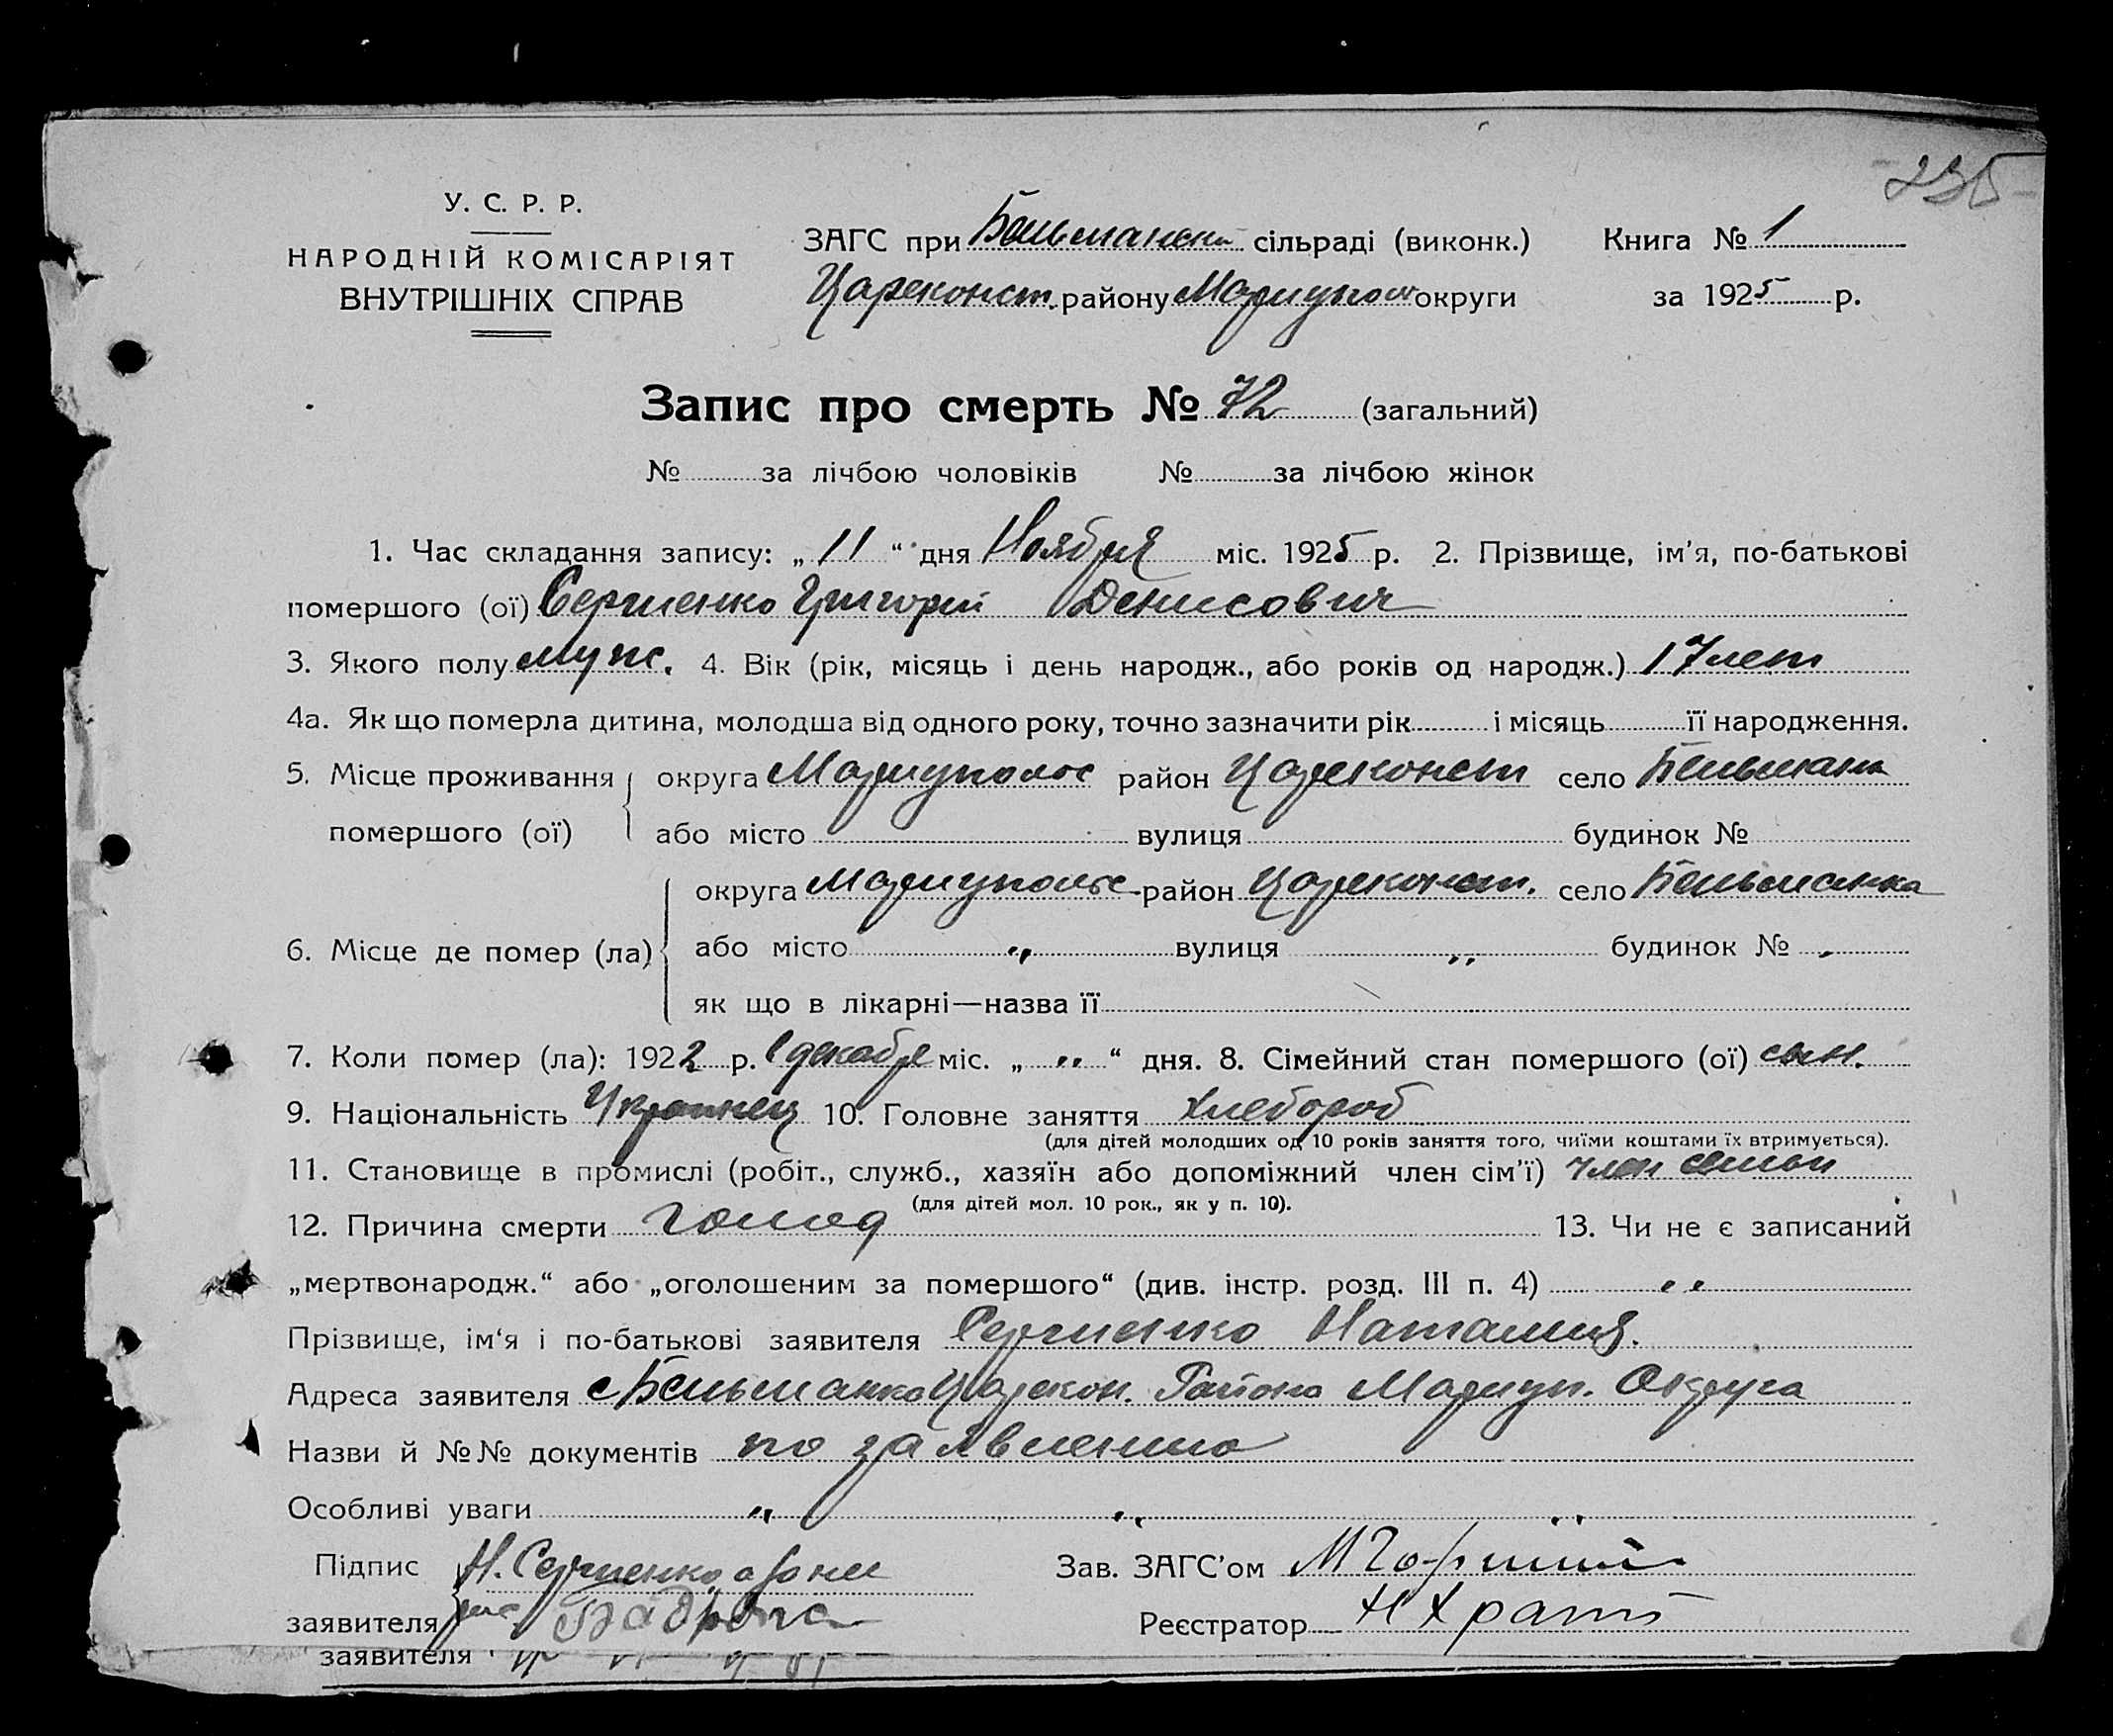 235
У. С. Р. Р.
НАРОДНІЙ КОМІСАРІЯТ
ВНУТРІШНІХ СПРАВ
ЗАГС при Бельманск сільраді (виконк.) Книга № 1
Цареконст. району Мариупол округи за 1925 р.
Запис про смерть № 72 (загальний)
№ за лічбою чоловіків № за лічбою жінок
1. Час складання запису: „ 11 “ дня Ноября міс. 1925 р. 2. Прізвище, ім’я, по-батькові
помершого (ої) Сергиенко Григорий Денисович
3. Якого полу муж. 4. Вік (рік, місяць і день народж., або років од народж.) 17 лет
4а. Як що померла дитина, молодша від одного року, точно зазначити рік і місяць її народження.
5. Місце проживання округа Мариуполь район Цареконст село Бельманка
помершого (ої) або місто вулиця будинок №
округа Мариупольс район Цареконст. село Бельманка
6. Місце де помер (ла) або місто „ вулиця „ будинок № „
як що в лікарні—назва її
7. Коли помер (ла): 1922 р. декабре міс. „ „ “ дня. 8. Сімейний стан помершого (ої) сын.
9. Національність Украинец 10. Головне заняття хлебороб
(для дітей молодших од 10 років заняття того, чиїми коштами їх втримується).
11. Становище в промислі (робіт., служб., хазяїн або допоміжний член сім’ї) член семьи
(для дітей мол. 10 рок., як у п. 10).
12. Причина смерти голод 13. Чи не є записаний
„мертвонародж.“ або „оголошеним за помершого“ (див. інстр. розд. III п. 4) „
Прізвище, ім‘я і по-батькові заявителя Сергиенко Наталия.
Адреса заявителя с Бельманка Царекон. Района Мариуп. Округа
Назви й №№ документів по заявлению
Особливі уваги „ „ „
Підпис Н. Сергиенко, а Зав. ЗАГС’ом
заявителя Реєстратор
заявителя